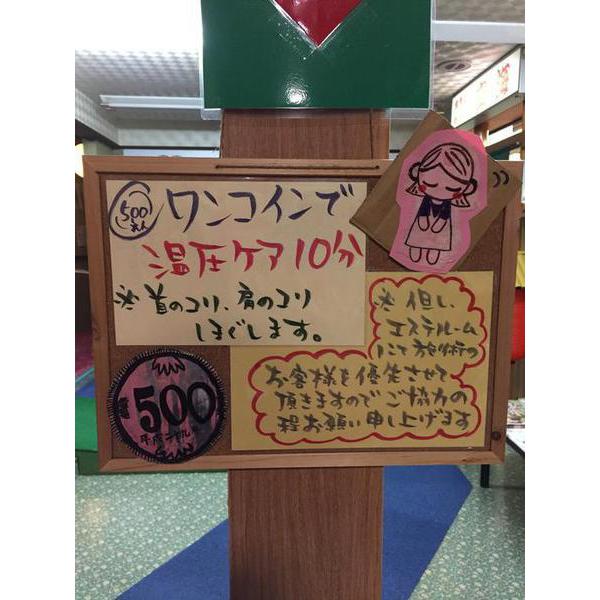 500
えん
ワンコインで
温圧ケア10分
※首のコリ、肩のコリ
ほぐします。
※但し、
エステルーム
にて施術の
お客様を優先させて
頂きますのでご協力の
程お願い申し上げます
500